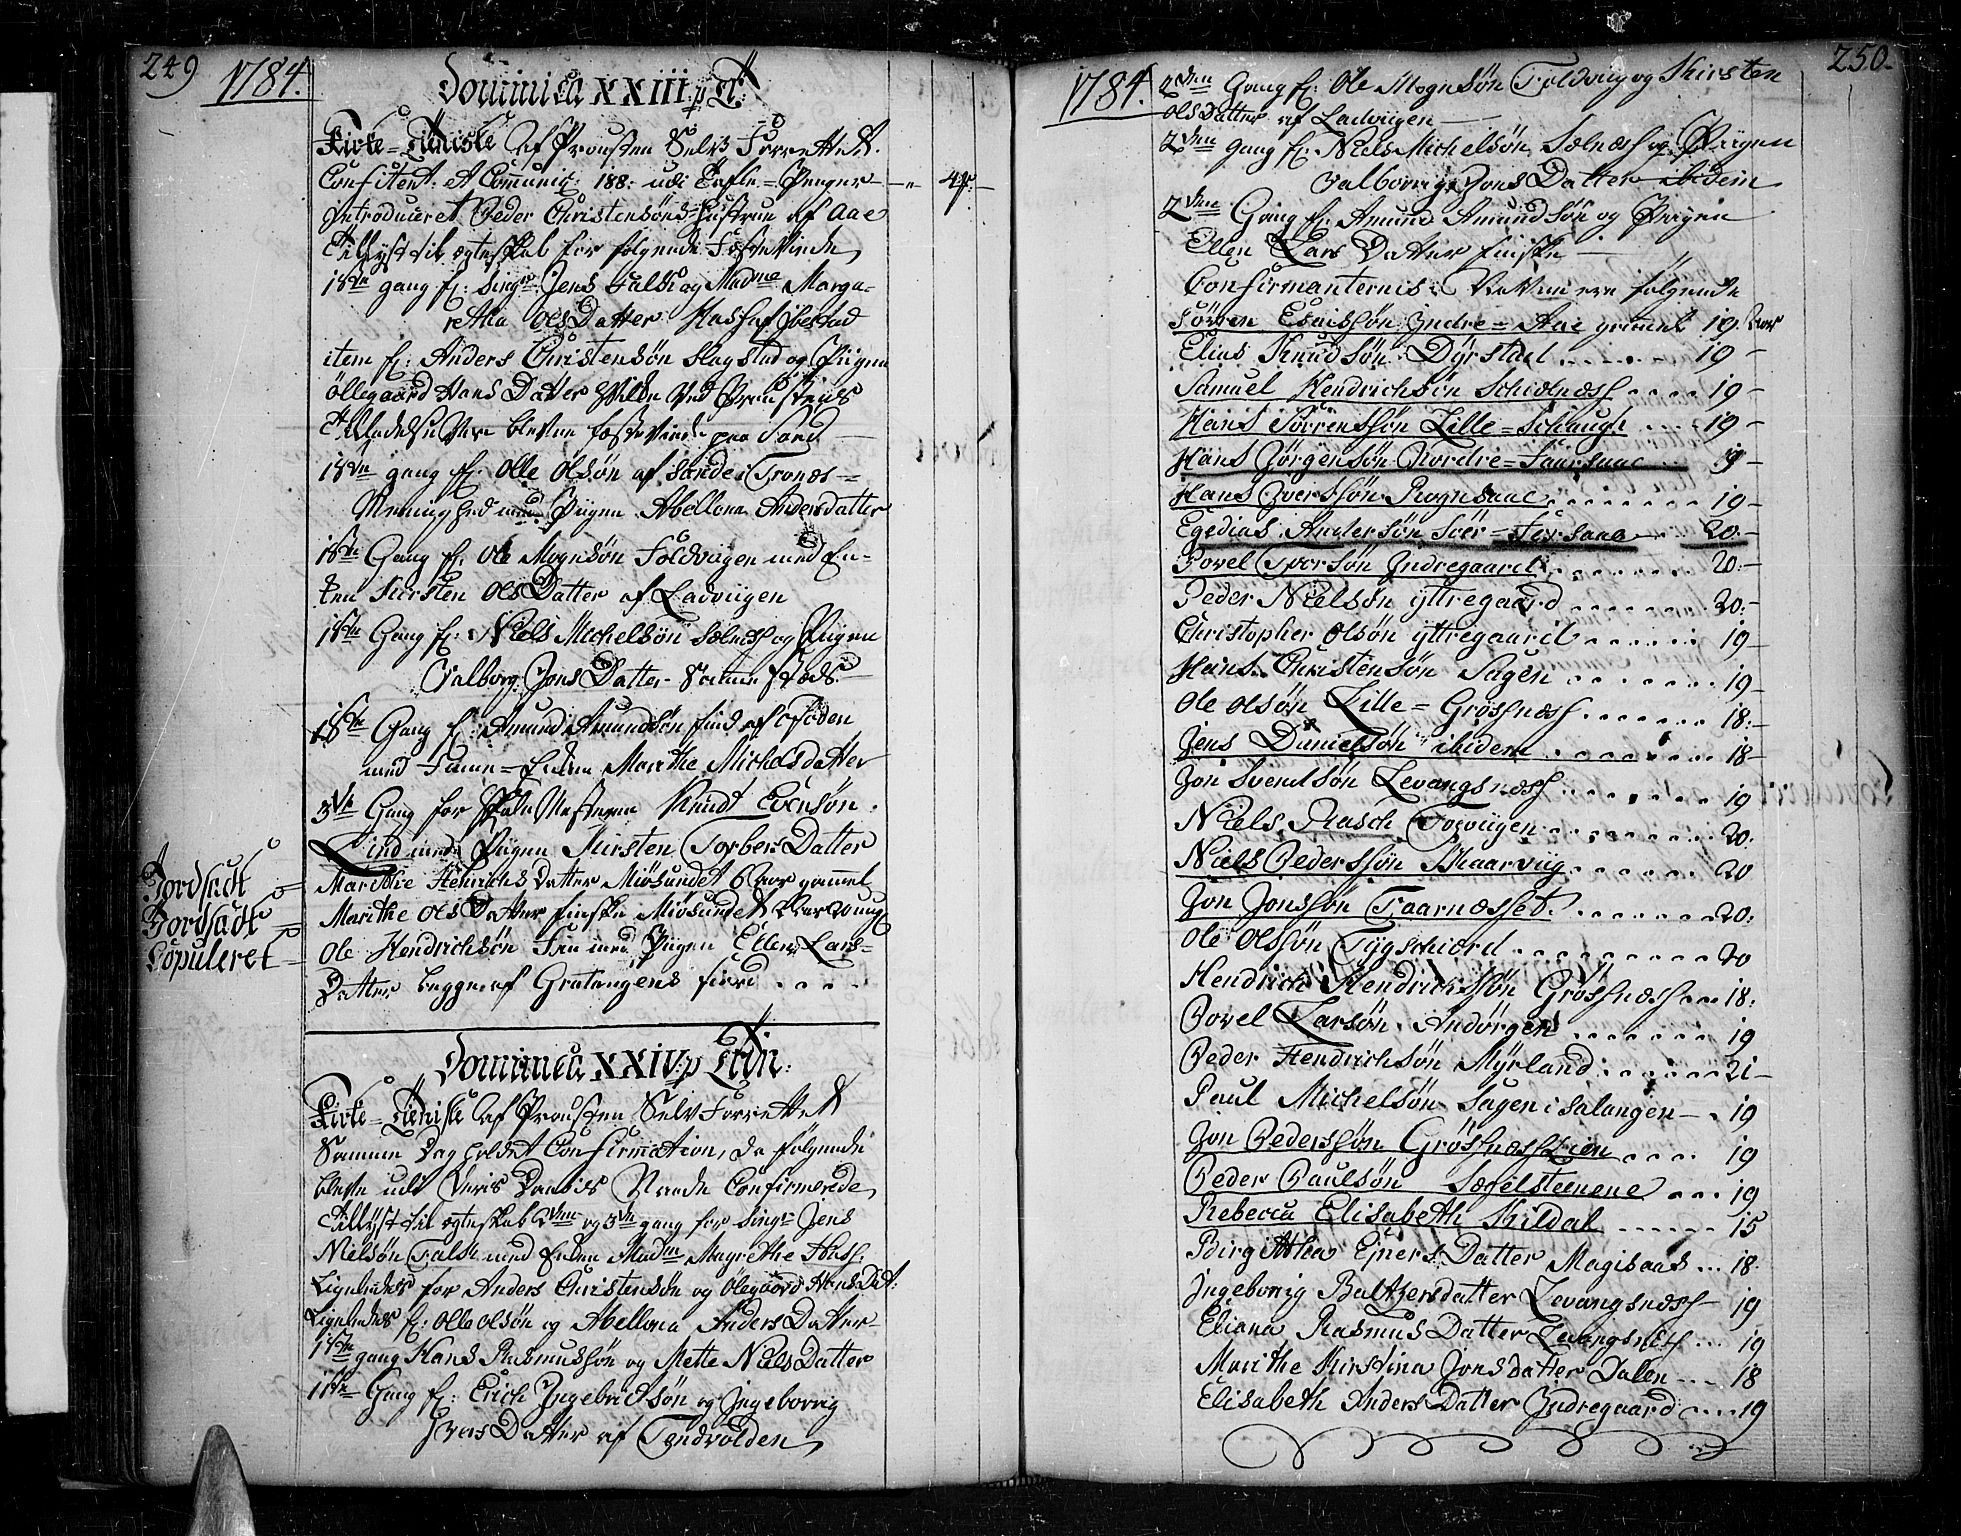 249
1784.
Dominica XXIII p T:
Kirke-Tieniste af Prousten Selv Forrettet.
Confitent. et Communic: 188. udi Tafle-Penger - - " 4
Introduceret Peder Christensøns Hustrue af Aae
Tillyst til egteskab for følgende
1ste gang f: Sing: Jens Falch og Mad Marga-
retha OlsDatter Hass af Ibestad
item f: Anders Christensøn Hagstad og Piigen
Øllegaard Hans Datter
1ste gang f: Olle Olsøn af Sandes Tronæs
Menighed med Piigen Abellona Andersdatter
1ste Gang f: Ole Mognsøn Foldviigen med En-
ken Kirsten OlsDatter af Ladviigen
1ste Gang f: Niels Michelsøn Sælnæss og Piigen
Valborg JonsDatter samme steds
1ste Gang f: Amund Amundsøn
med Marithe Michelsdatter
3de Gang for Knudt Evensøn
Lind med Piigen Kirsten TorbersDatter
Jordsadt = Marithe Hehnrichs Datter Miøsundet 6 Aar gammel
Jordsadt = Marithe OlsDatter finske Miøsundet
Copuleret = Ole Hendrichsøn Fin med Piigen Ellen Lars=
Datter begge af Gratangens fiord . . . .
Dominica XXIV p Trin:
Kirke-Tieniste af Prousten Selv Forrettet
Samme Dag holdet Confirmation, da følgende
bleve udi deris Daabes Naade Confirmerede,
Tillyst til egteskab 2den og 3de gang for Singr Jens
Nielsøn Falch med Enken Mad Magrethe Hass,
Ligeledes for Anders Christensøn og Olegaard HansDat:
Ligeledes f: Olle Olsøn og Abellona AndersDatter
1ste gang Hans Rasmussøn og Mette NielsDatter
1ste Gang f: Erich Ingebrichtsøn og Ingeborrig
IversDatter af Tendvolden
250.
1784.
2den Gang f: Ole Mognsøn Foldviig og Kirsten
OlsDatter af Ladviigen
2den gang f: Niels Michelsøn Sælnæss og Piigen
Valborrig JonsDatter ibidem
2den Gang f: Amund Amundsøn og Piigen
Ellen Lars Datter finske
Confirmanternis Nafne ere følgende
Sørren Esaissøn Indre=Aae gammel 19 Aar
Elias Knudsøn Dyrstad . . . . . 19 -
Samuel Hendrichsøn Schiælnæss . . . . 19 -
Hans Sørrenssøn Lille=Schaugh . . . 19 -
Hans Jørgensøn Nordre=Faursaae . . 19 -
Hans Iverssøn Rognsaae . . . . . . . 19 -
Egedias Andersøn Soer=Forsaae 20 -
Povel Iversøn Indregaard . . . . . . . 20 -
Peder Nielsøn yttregaard . . . . . . . 20 -
Christopher Olsøn yttregaard . . . . . . 19 -
Hans Christensøn Sagen . . . . . . . 19 -
Ole Olsøn Lille=Grøssnæss . . . . . . . 18 -
Jens Danielsøn ibidem . . . . . . . 18 -
Jon Svendsøn Levangsnæss . . . . . . . 19
Niels Rasch Torviigen . . . . . . . 20.
Niels Pederssøn Skaarviig . . . . . . . 20
Jon Jonssøn Taarnæsset . . . . . . . 20.
Ole Olssøn Tygschiord . . . . . . . . . 20
Hendrich Hendrichsøn Grøssnæss . . . 18.
Povel Larsøn Andørgen . . . . . . . 19
Peder Hendrichsøn Myrland . . . . . . 21 -
Paul Michelsøn Sagen i Salangen - . 19
Jon Pederssøn Grøssnæssleien . . . . 19
Peder Paulsøn Segelsteenene . . . 19
Rebecca Elisabeth Kildal . . . . . . 15
Birgittha Ejners Datter Magisaas . . . 18.
Ingeborrig Baltzersdatter Levangsnæss - 19
Eliana Rasmus Datter Levangsnæss . . . 19
Marithe Kirstina Jonsdatter Dalen . . . 18
Elisabeth Anders Datter Indregaard . . . . 19